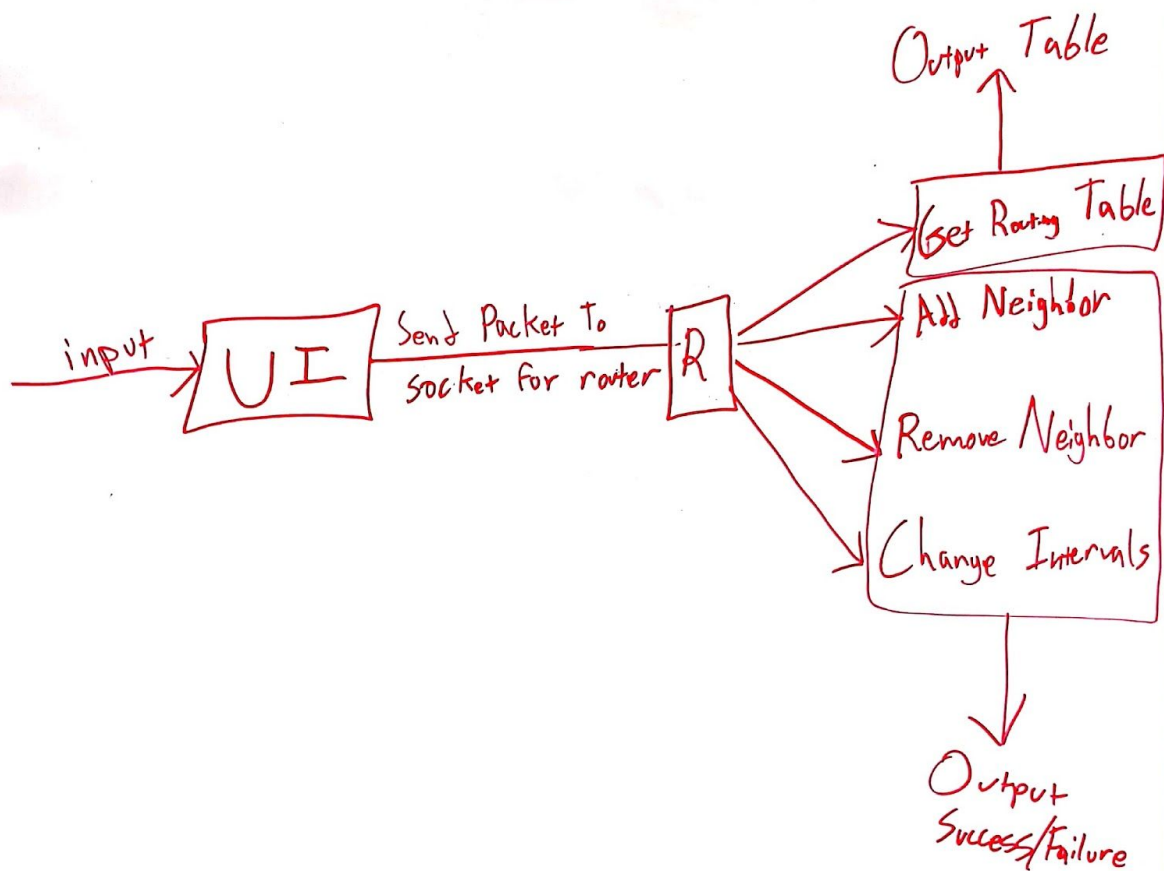 Output Table
Get Routing Table
input
UI
Send Packet To
socket for router
R
Add Neighbor
Remove Neighbor
Change Intervals
Output
Success/Failure